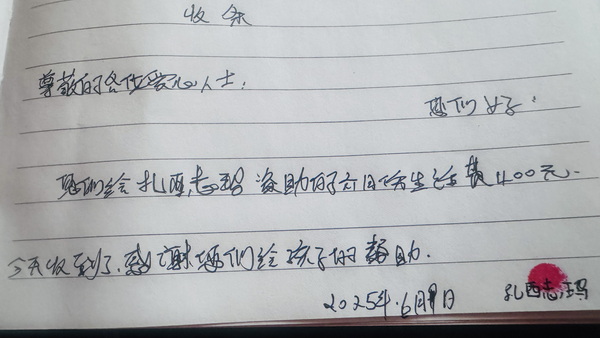 收条
尊敬的各位爱心人士:
您们好:
您们给扎西志玛资助的六月份生活费400元.
今天收到了.感谢您们给孩子的帮助.
2025年.6月 日 扎西志玛